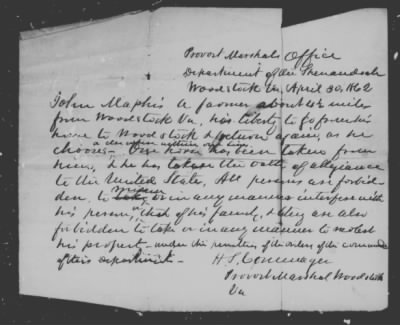 Provost Marshals Office
Department of the Shenandoah
Woodstock Va, April 30, 1862
John Maphis a farmer about 6½ miles
from Woodstock Va, has liberty to go from his
home to Woodstock & return again, as he
chooses — One horse has been taken from
him, & he has taken the oath of allegiance
to the United State, All persons are forbid-
den, to or in any manner interfere with
his person, that of his family, & they are also
forbidden to take or in any manner to molest
his property under the penalties of the orders of the command
of this Department —
Provost Marshal Woodstock
Va